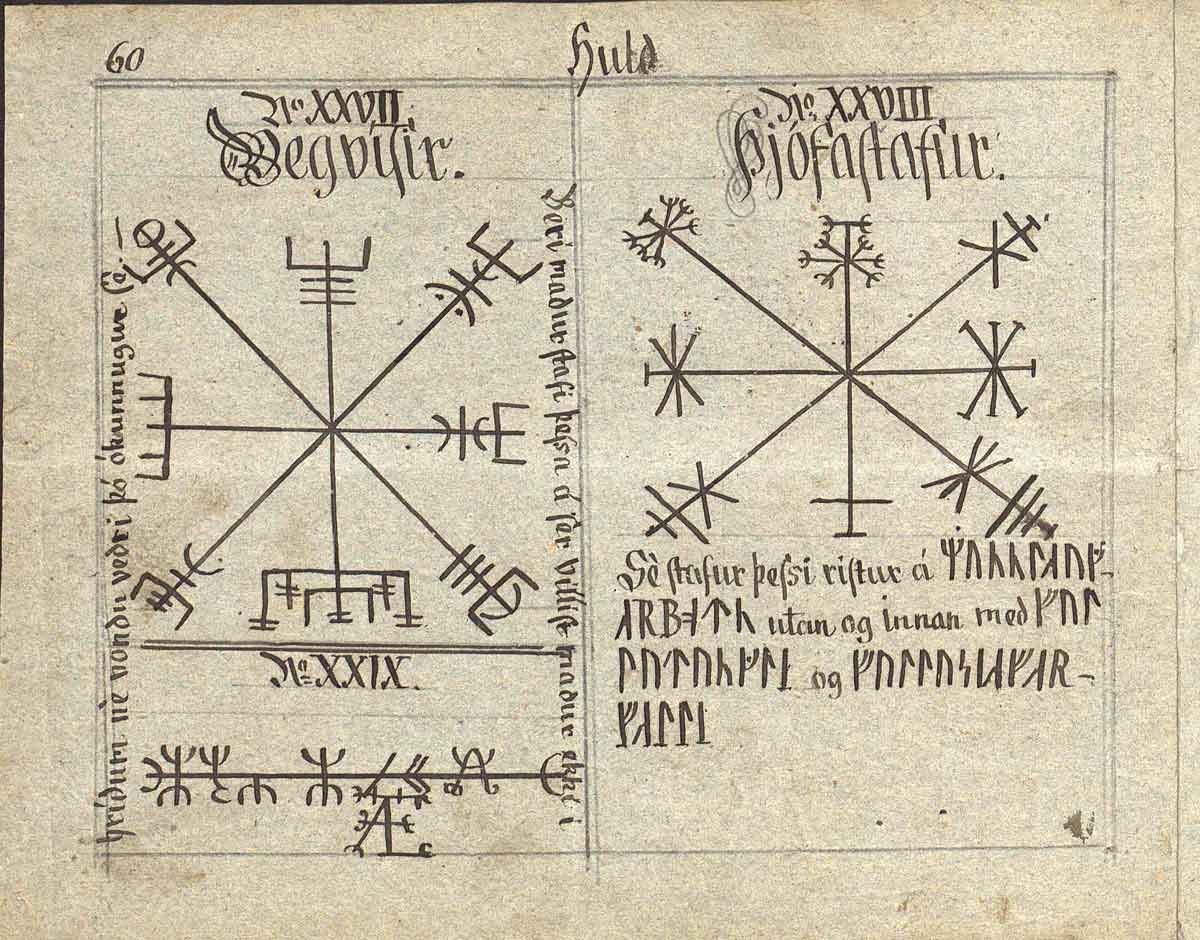 60
Huld
No XXVII.
Vegvíſir.
Beri madur ſtafi þeſſa á ſér villiſt madur ekki í
hrídum né vondu vedri þó ókunnugur ſé. —
No XXIX.
No XXVIII.
Þjófaſtafur.
Sè ſtafur þeſsi riſtur á ᛘᚢᚿᚿᛚᛅᚢᚵ-
ᛅᚱᛒᚮᛏᚿ utan og innan med ᚠᚢᛚ
ᛚᚢᛏᚢᚿᚵᛚᛁ og ᚠᚢᛚᛚᚢᛋᛁᛅᚠᛅᚱ-
ᚠᛅᛚᛚᛁ